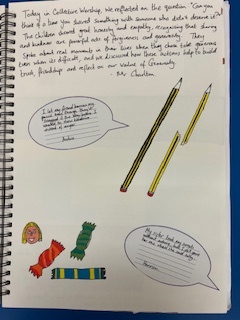 Today in Collective Worship, we reflected on the question "Can you
think of a time you shared something with someone who didn't deserve it?"
The children showed great honesty and empathy, recognising that sharing
and kindness are powerful acts of forgiveness and generosity. They
spoke about real moments in their lives when they chose to be generous
even when it's difficult, and we discussed how these actions help to build
trust, friendship and reflect on our Value of Generosity.
Mr Charlton.
I let my friend borrow my
instead of
My sister took my
without asking, but I still gave